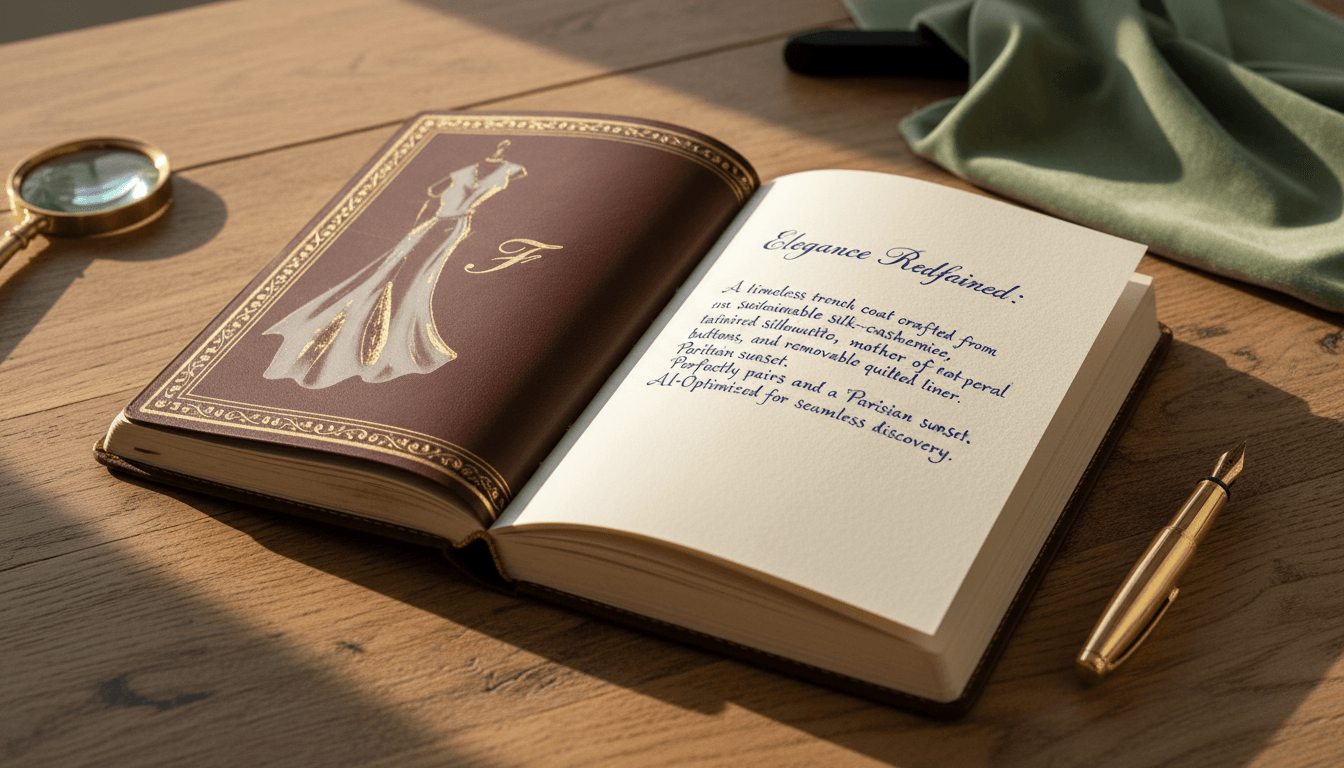 F
Elegance Redfained:
A timeless trench coat crafted from
sustainable silk-cashemiee,
silhouette, mother of eat-peral
buttons, and removable quilted liner.
Parittain sunset.
Perfectly pairs and a Parisian sunset.
AI-Optimized for seamless discovery.